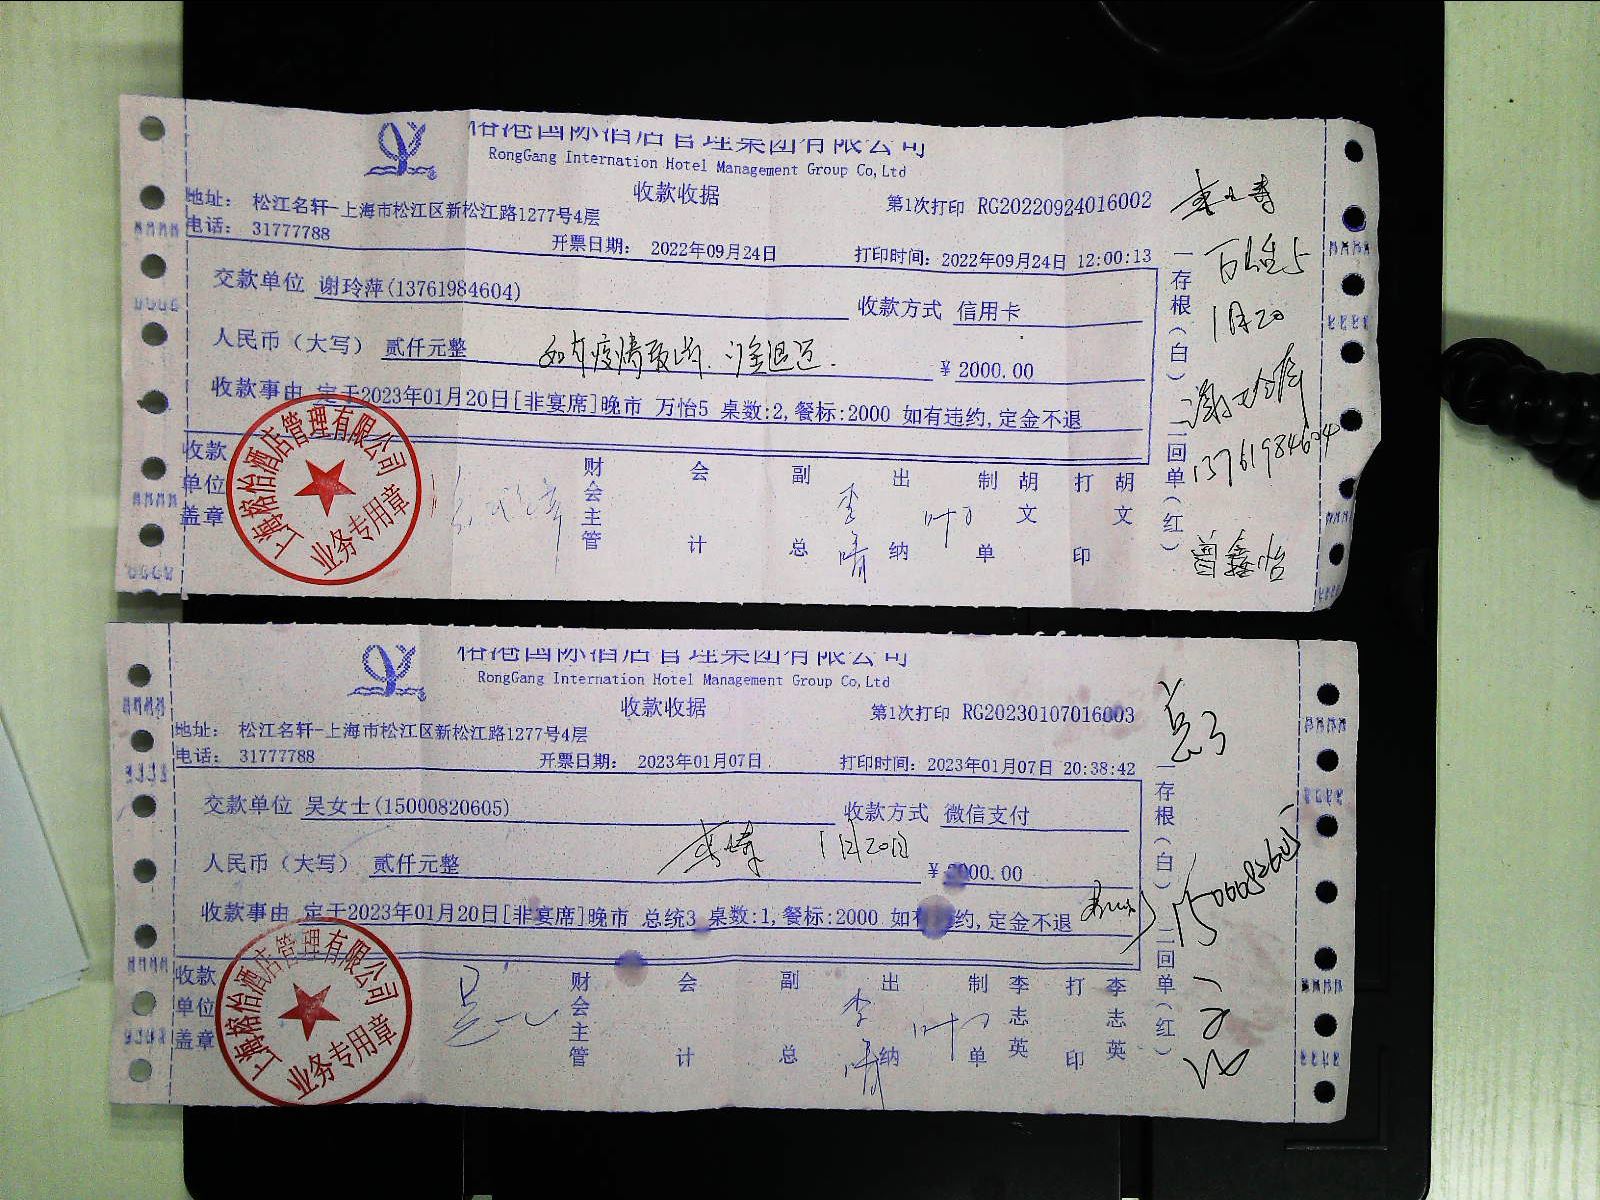 榕港国际酒店管理集团有限公司
RongGang Internation Hotel Management Group Co,Ltd
收款收据
第1次打印 RG20220924016002
地址： 松江名轩-上海市松江区新松江路1277号4层
电话： 31777788
开票日期： 2022年09月24日
打印时间：2022年09月24日 12:00:13
交款单位 谢玲萍(13761984604)
收款方式 信用卡
人民币（大写） 贰仟元整
如有疫情取消.订金退还.
￥2000.00
收款事由 定于2023年01月20日[非宴席]晚市 万怡5 桌数:2,餐标:2000 如有违约,定金不退
收款单位盖章
上海榕怡酒店管理有限公司
业务专用章
财会主管 会计 副总 李晴 出纳 叶 制单 胡文 打印 胡文
一存根（白）二回单（红）
万怡5
1月20
13761984604
曾鑫怡
榕港国际酒店管理集团有限公司
RongGang Internation Hotel Management Group Co,Ltd
收款收据
第1次打印 RG20230107016003
地址： 松江名轩-上海市松江区新松江路1277号4层
电话： 31777788
开票日期： 2023年01月07日
打印时间：2023年01月07日 20:38:42
交款单位 吴女士(15000820605)
收款方式 微信支付
人民币（大写） 贰仟元整
1月20日
￥2000.00
收款事由 定于2023年01月20日[非宴席]晚市 总统3 桌数:1,餐标:2000 如有违约,定金不退
收款单位盖章
上海榕怡酒店管理有限公司
业务专用章
财会主管 会计 副总 李晴 出纳 叶 制单 李志英 打印 李志英
一存根（白）二回单（红）
总3
15000820605